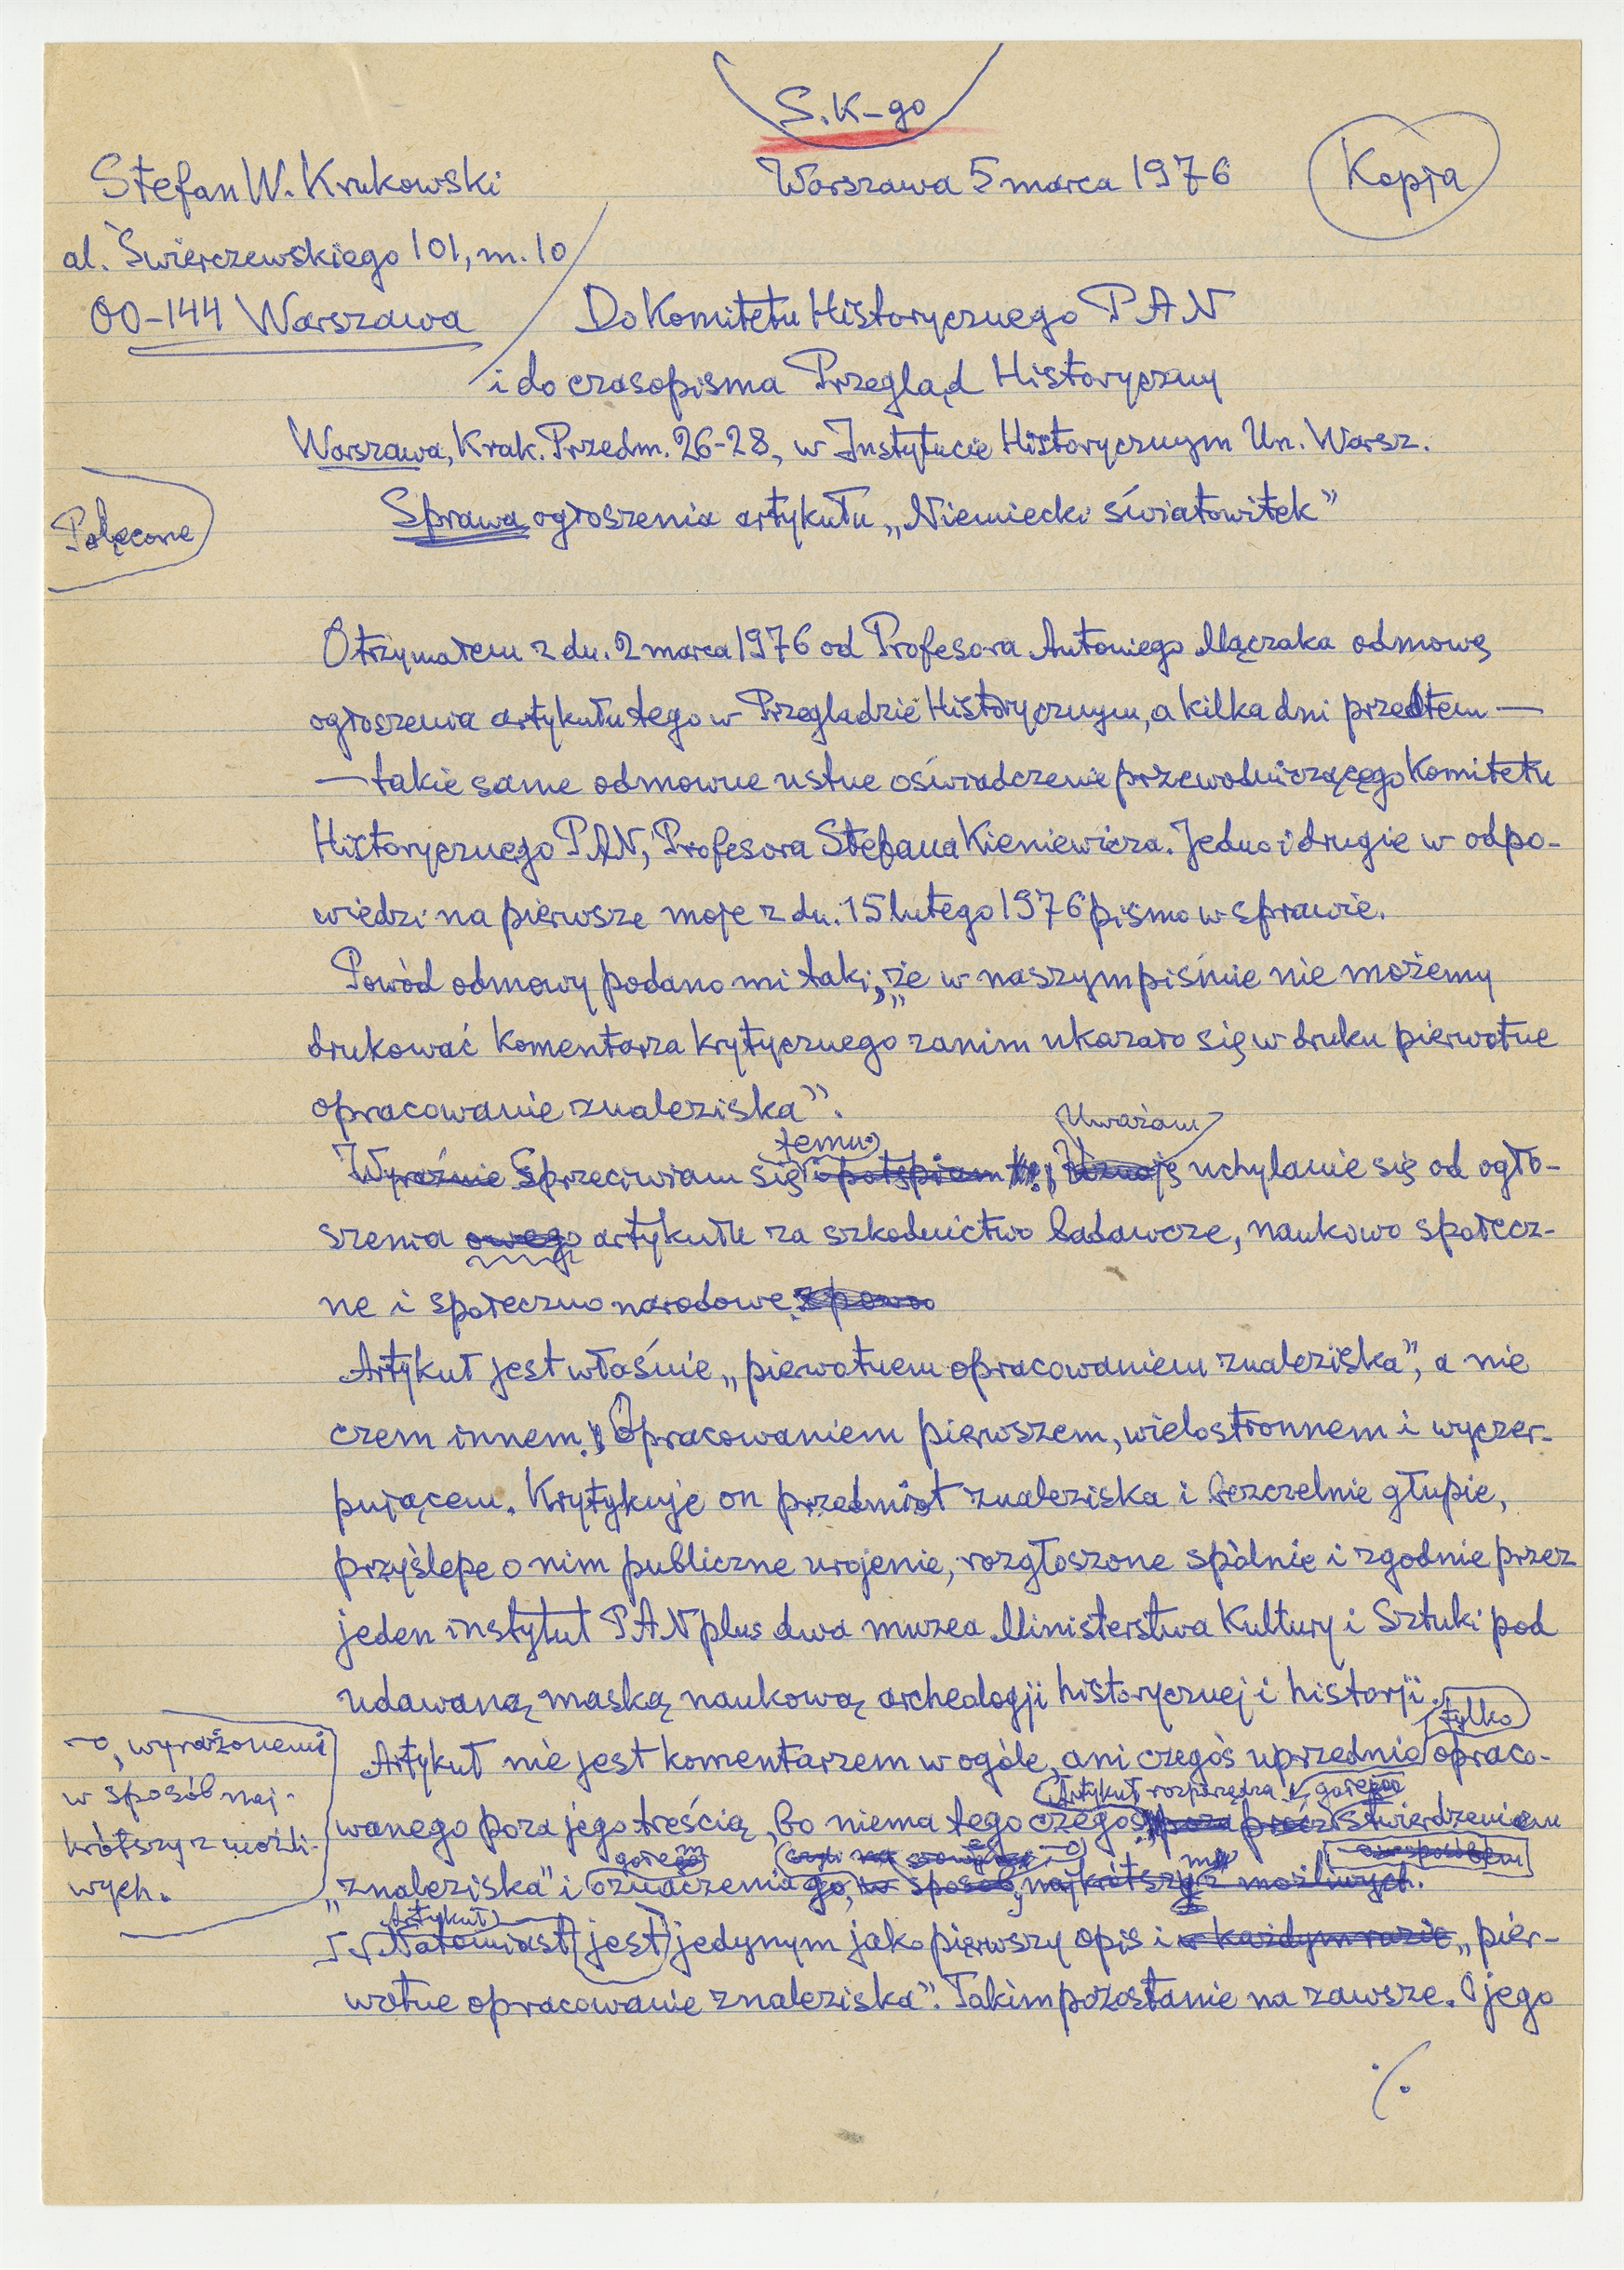 S. K-go
Stefan W. Krukowski
Warszawa 5 marca 1976
Kopja
al. Świerczewskiego 101, m. 10
00-144 Warszawa
Do Komitetu Historycznego PAN
i do czasopisma Przegląd Historyczny
Warszawa, Krak. Przedm. 26-28, w Instytucie Historycznym Un. Warsz.
Polecone
Sprawa ogłoszenia artykułu „Niemiecki światowitek”
Otrzymałem z du. 2 marca 1976 od Profesora Antoniego Mączaka odmowę
ogłoszenia artykułu tego w Przeglądzie Historycznym, a kilka dni przedtem —
— takie same odmowne ustne oświadczenie przewodniczącego Komitetu
Historycznego PAN, Profesora Stefana Kieniewicza. Jedno i drugie w odpo-
wiedzi na pierwsze moje z dn. 15 lutego 1976 pismo w sprawie.
Powód odmowy podano mi taki, „że w naszym piśmie nie możemy
drukować komentarza krytycznego zanim ukazało się w druku pierwotne
opracowanie znaleziska”.
temu Uważam
Wyraźnie Sprzeciwiam się i potępiam Uznaję uchylanie się od ogło-
szenia owego artykułu za szkodnictwo badawcze, naukowo społecz-
ne i społeczno narodowe.
Artykuł jest właśnie „pierwotnem opracowaniem znaleziska”, a nie
czem innem. Opracowaniem pierwszem, wielostronnem i wyczer-
pującem. Krytykuje on przedmiot znaleziska i bezczelnie głupie,
przyślepe o nim publiczne urojenie, rozgłoszone spólnie i zgodnie przez
jeden instytut PAN plus dwa muzea Ministerstwa Kultury i Sztuki pod
udawaną maską naukową archeologji historycznej i historji.
tylko
Artykuł nie jest komentarzem w ogóle, ani czegoś uprzednio opraco-
Artykuł rozporządza gołem
wanego poza jego treścią, bo niema tego czegoś poza prócz stwierdzeniem
gołem
„znaleziska” i oznaczenia go, w sposób najkrótszy z możliwych.
-o, wyrażonemi
w sposób naj-
krótszy z możli-
wych.
Artykuł
Natomiast jest jedynym jako pierwszy opis i w każdym razie „pier-
wotne opracowanie znaleziska”. Takim pozostanie na zawsze. O jego
./.